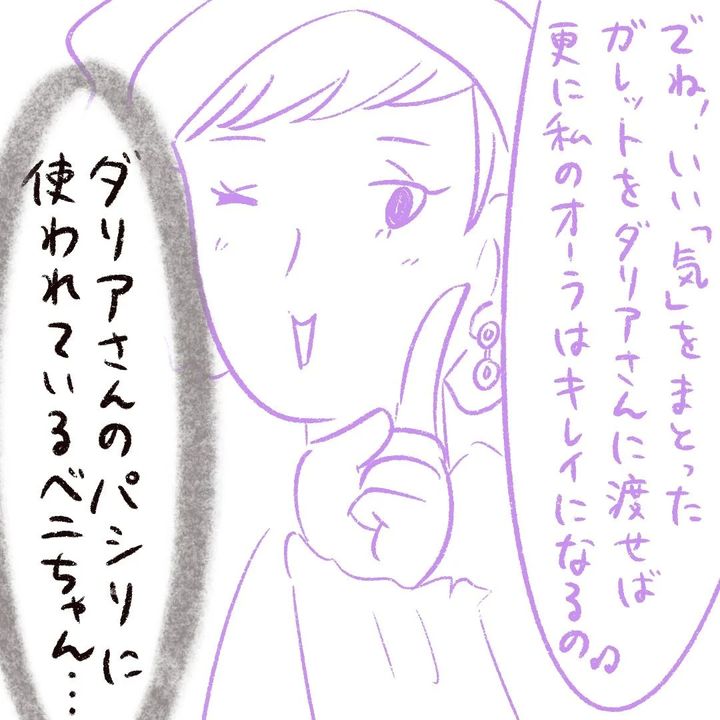 でね！いい「気」をまとった
ガレットをダリアさんに渡せば
更に私のオーラはキレイになるの♫
ダリアさんのパシリに
使われているベニちゃん…